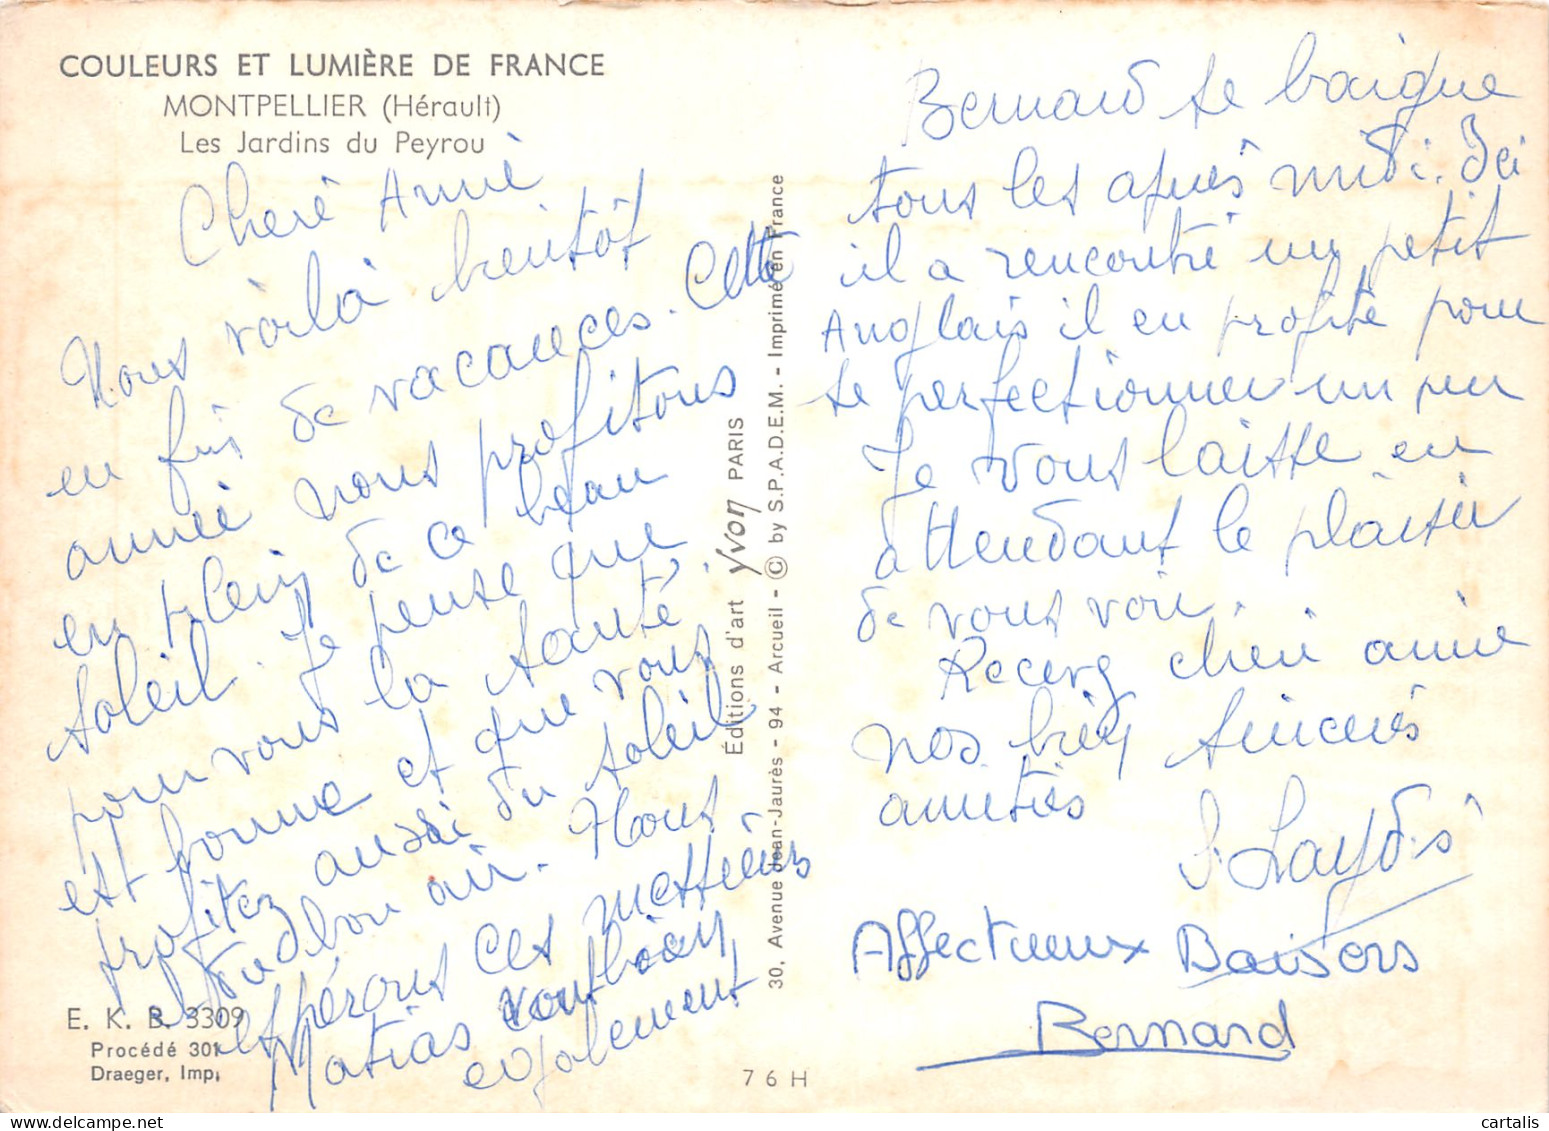 COULEURS ET LUMIÈRE DE FRANCE
MONTPELLIER (Hérault)
Les Jardins du Peyrou
Chère Annie
Nous voilà bientôt
en fin de vacances. Cette
année nous profitons
en plein de ce beau
soleil. Je pense que
pour vous la santé
est bonne et que vous
profitez aussi du soleil
et du bon air. Nous
espérons ces messieurs
Matias vont bien
egalement
E. K. B. 3309
Procédé 301
Draeger, Imp.
Éditions d'art Yvon PARIS
30, Avenue Jean-Jaurès - 94 - Arcueil - © by S.P.A.D.E.M. - Imprimé en France
76H
Bernard se baigne
tous les après midi. Ici
il a rencontré un petit
Anglais il en profite pour
se perfectionner un peu
Je vous laisse en
attendant le plaisir
de vous voir.
Recevez chère annie
nos bien sincères
amitiés
Affectueux Baisers
Bernard
cartalis